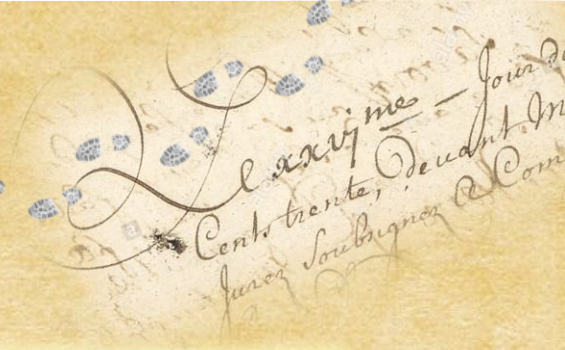 Le xxvj me Jour du
Cents trente, devant M
Jurez Soubsignez Le Com